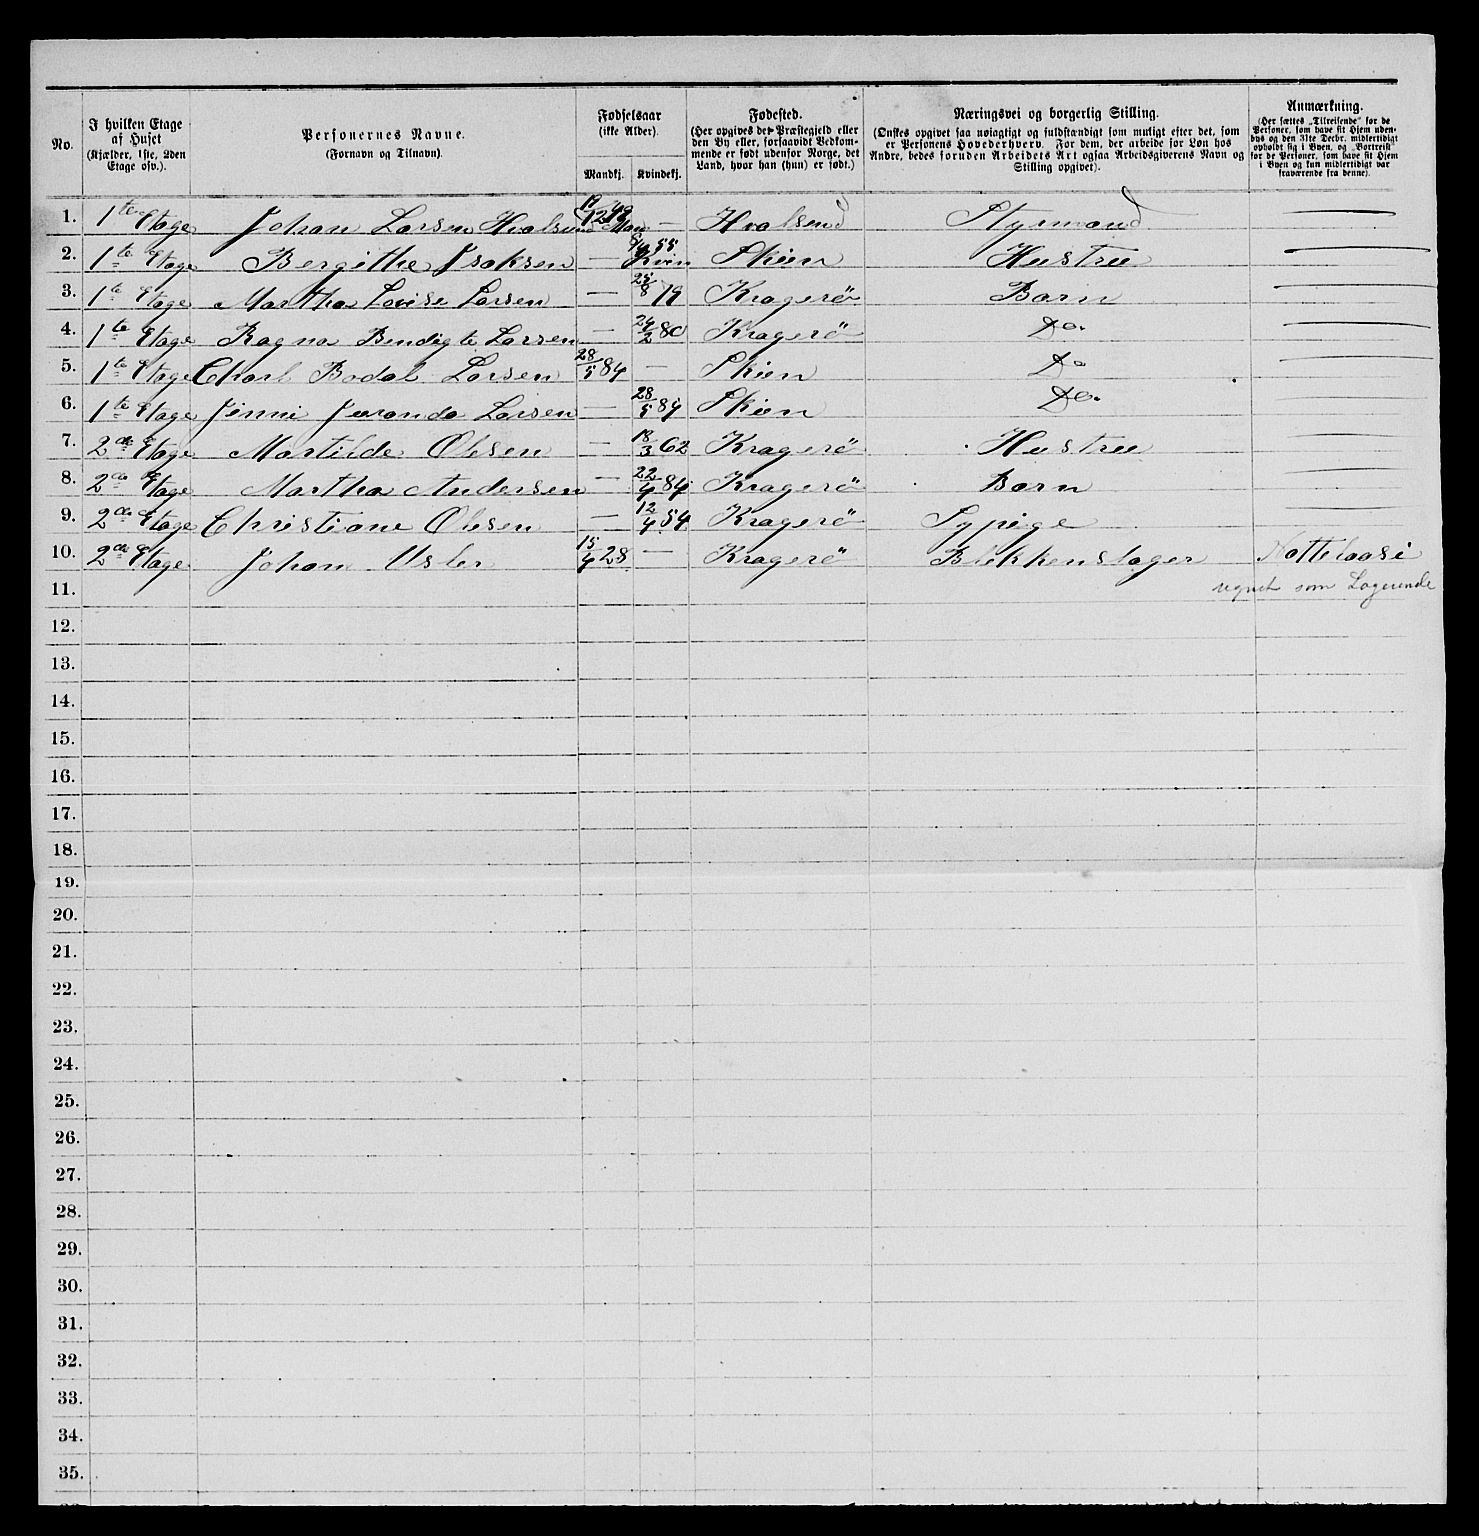 No.
I hvilken Etage af Huset (Kjælder, 1ste, 2den Etage osv.).
Personernes Navne. (Fornavn og Tilnavn).
Fødselsaar (ikke Alder). Mandkj. Kvindekj.
Fødested. (Her opgives det Præstegjeld eller den By eller, forsaavidt Vedkommende er født udenfor Norge, det Land, hvor han (hun) er født.)
Næringsvei og borgerlig Stilling. (Ønskes opgivet saa nøiagtigt og fuldstændigt som muligt efter det, som er Personens Hovederhverv. For dem, der arbeide for Løn hos Andre, bedes foruden Arbeidets Art ogsaa Arbeidsgiverens Navn og Stilling opgivet).
Anmærkning. (Her sættes „Tilreisende" for de Personer, som have sit Hjem udenbys og den 31te Decbr. midlertidigt opholdt sig i Byen, og „Bortreist" for de Personer, som have sit Hjem i Byen og kun midlertidigt var fraværende fra denne).
1. 1te Etage Johan Larsen Hvalsund Man — Hvalsund Styrmand —
2. 1te Etage Bergithe Isaksen — 55 Kvin Skien Hustru —
3. 1te Etage Martha Lovise Larsen — 25/8 79 Kragerö Barn —
4. 1te Etage Ragna Bendigte Larsen — 24/2 80 Kragerö Do. —
5. 1te Etage Charl Bodal Larsen 28/5 84 — Skien Do —
6. 1te Etage Jinni Larsen — 28/5 84 Skien Do. —
7. 2de Etage Martilde Olsen — 18/3 62 Kragerö Hustru —
8. 2de Etage Martha Andersen — 22/4 84 Kragerö Barn —
9. 2de Etage Christiane Olsen — 12/4 54 Kragerö Sypige —
10. 2de Etage Johan Usler 15/4 28 — Kragerö Blekkenslager
11. regnet som Logerende
12.
13.
14.
15.
16.
17.
18.
19.
20.
21.
22.
23.
24.
25.
26.
27.
28.
29.
30.
31.
32.
33.
34.
35.